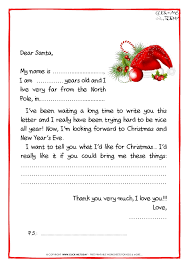 Dear Santa,
My name is ............
I am ........ years old and I
live very far from the North
Pole, in ............
I've been waiting a long time to write you this
letter and I really have been trying hard to be nice
all year! Now, I'm looking forward to Christmas and
New Year's Eve.
I want to tell you what I'd like for Christmas. I'd
really like it if you could bring me these things:
Thank you very much, I love you!!!
P.S.